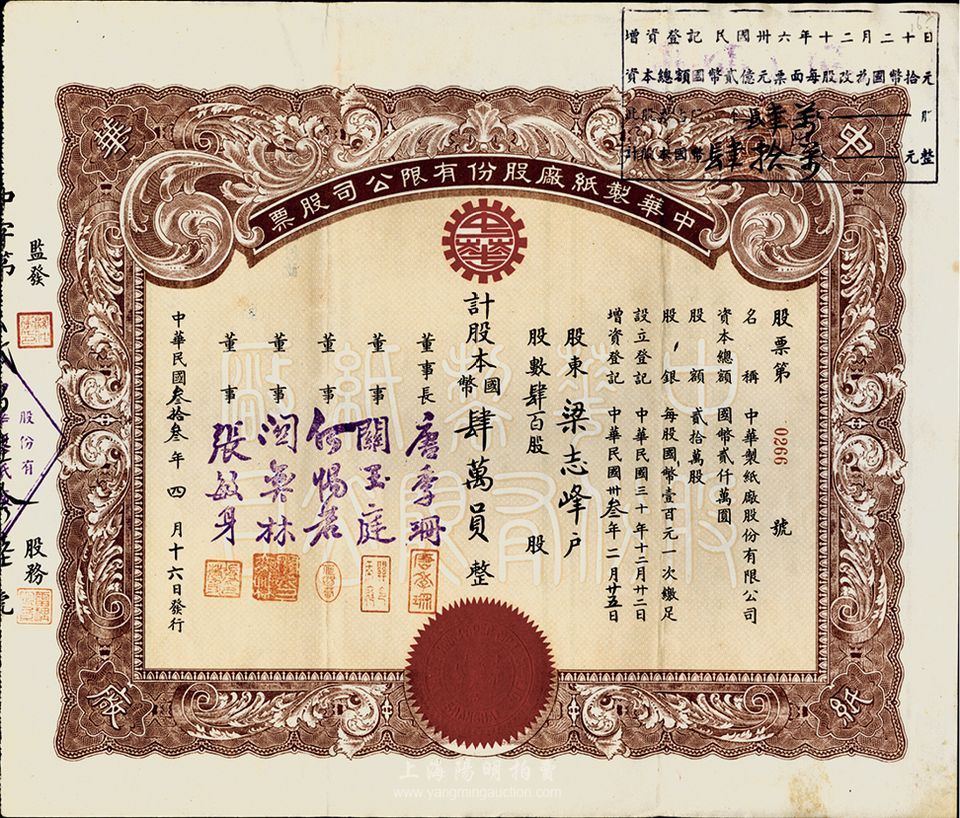 增資登記民國卅六年十二月二十日
資本總額國幣貳億元票面每股改為國幣拾元
肆萬
國幣肆拾萬元整
中華
紙廠
中華製紙廠股份有限公司股票
股票第0266號
名稱 中華製紙廠股份有限公司
資本總額 國幣貳仟萬圓
股額 貳拾萬股
股銀 每股國幣壹百元一次繳足
設立登記 中華民國三十年十二月廿二日
增資登記 中華民國卅叁年二月廿五日
股東 梁志峰戶
股數肆百股 股
計股本國幣肆萬員整
董事長 唐季珊
董事 關玉庭
董事 何惕若
董事
董事 張敏身
中華民國叁拾叁年四月十六日發行
中華製紙廠
股份有限公司
監發
股份有
股務
上海陽明拍賣
www.yangmingauction.com